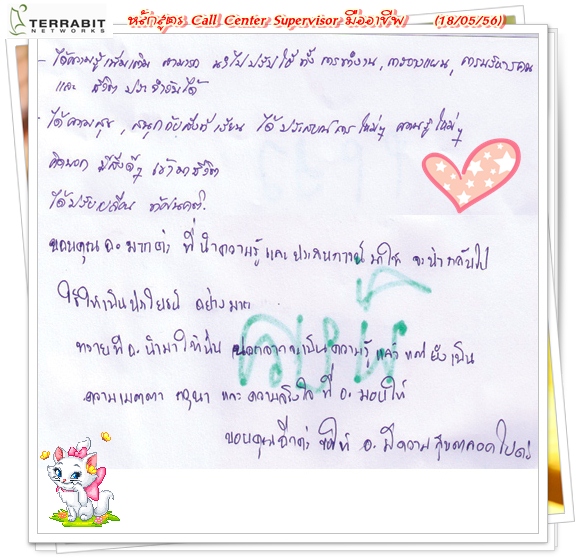 TERRABIT
NETWORKS
หลักสูตร Call Center Supervisor มืออาชีพ (18/05/56)
- ได้ความรู้เพิ่มเติม สามารถ นำไปปรับใช้ทั้ง การทำงาน, การวางแผน, การบริหารคน
และ ชีวิต ประจำวันได้
ได้ความสุข, สนุกกับสิ่งที่เรียน ได้ประสบการณ์ใหม่ๆ ความรู้ใหม่ๆ
มีสิ่งดีๆ เข้ามาชีวิต
ได้ปรับเปลี่ยน ทัศนคติ.
ขอบคุณ อ. มากค่ะ ที่นำความรู้และประสบการณ์ มาให้ จะนำกลับไป
ใช้ให้เป็นประโยชน์ อย่างมาก
ที่ อ. นำมาให้นั้น นอกจากจะเป็นความรู้ แล้ว แต่ยังเป็น
ความเมตตา กรุณา และ ความจริงใจ ที่ อ. มอบให้
ขอบคุณอีกค่ะ ขอให้ อ. มีความสุขตลอดไปค่ะ